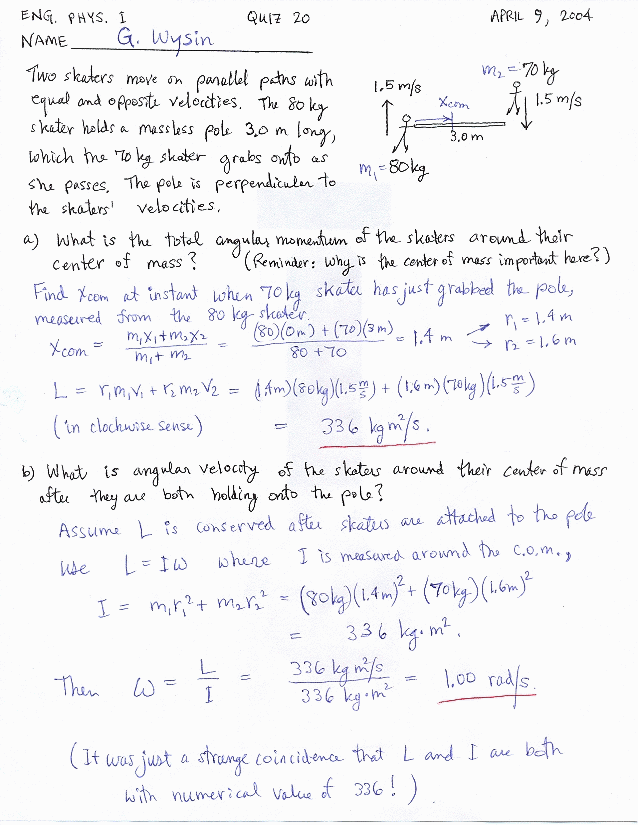 ENG. PHYS. I QUIZ 20 APRIL 9, 2004
NAME G. Wysin
Two skaters move on parallel paths with
equal and opposite velocities. The 80 kg
skater holds a massless pole 3.0 m long,
which the 70 kg skater grabs onto as
she passes. The pole is perpendicular to
the skaters' velocities.
1.5 m/s
m₂ = 70 kg
1.5 m/s
Xcom
3.0 m
m₁ = 80 kg
a) What is the total angular momentum of the skaters around their
center of mass? (Reminder: Why is the center of mass important here?)
Find Xcom at instant when 70 kg skater has just grabbed the pole,
measured from the 80 kg skater.
Xcom = m₁x₁ + m₂x₂ / m₁ + m₂ = (80)(0m) + (70)(3m) / 80 + 70 = 1.4 m → r₁ = 1.4 m
→ r₂ = 1.6 m
L = r₁m₁v₁ + r₂m₂v₂ = (1.4m)(80kg)(1.5 m/s) + (1.6m)(70kg)(1.5 m/s)
(in clockwise sense) = 336 kg m²/s.
b) What is angular velocity of the skaters around their center of mass
after they are both holding onto the pole?
Assume L is conserved after skaters are attached to the pole
use L = Iω where I is measured around the c.o.m.,
I = m₁r₁² + m₂r₂² = (80kg)(1.4m)² + (70kg)(1.6m)²
= 336 kg·m².
Then ω = L / I = 336 kg m²/s / 336 kg·m² = 1.00 rad/s.
(It was just a strange coincidence that L and I are both
with numerical value of 336!)